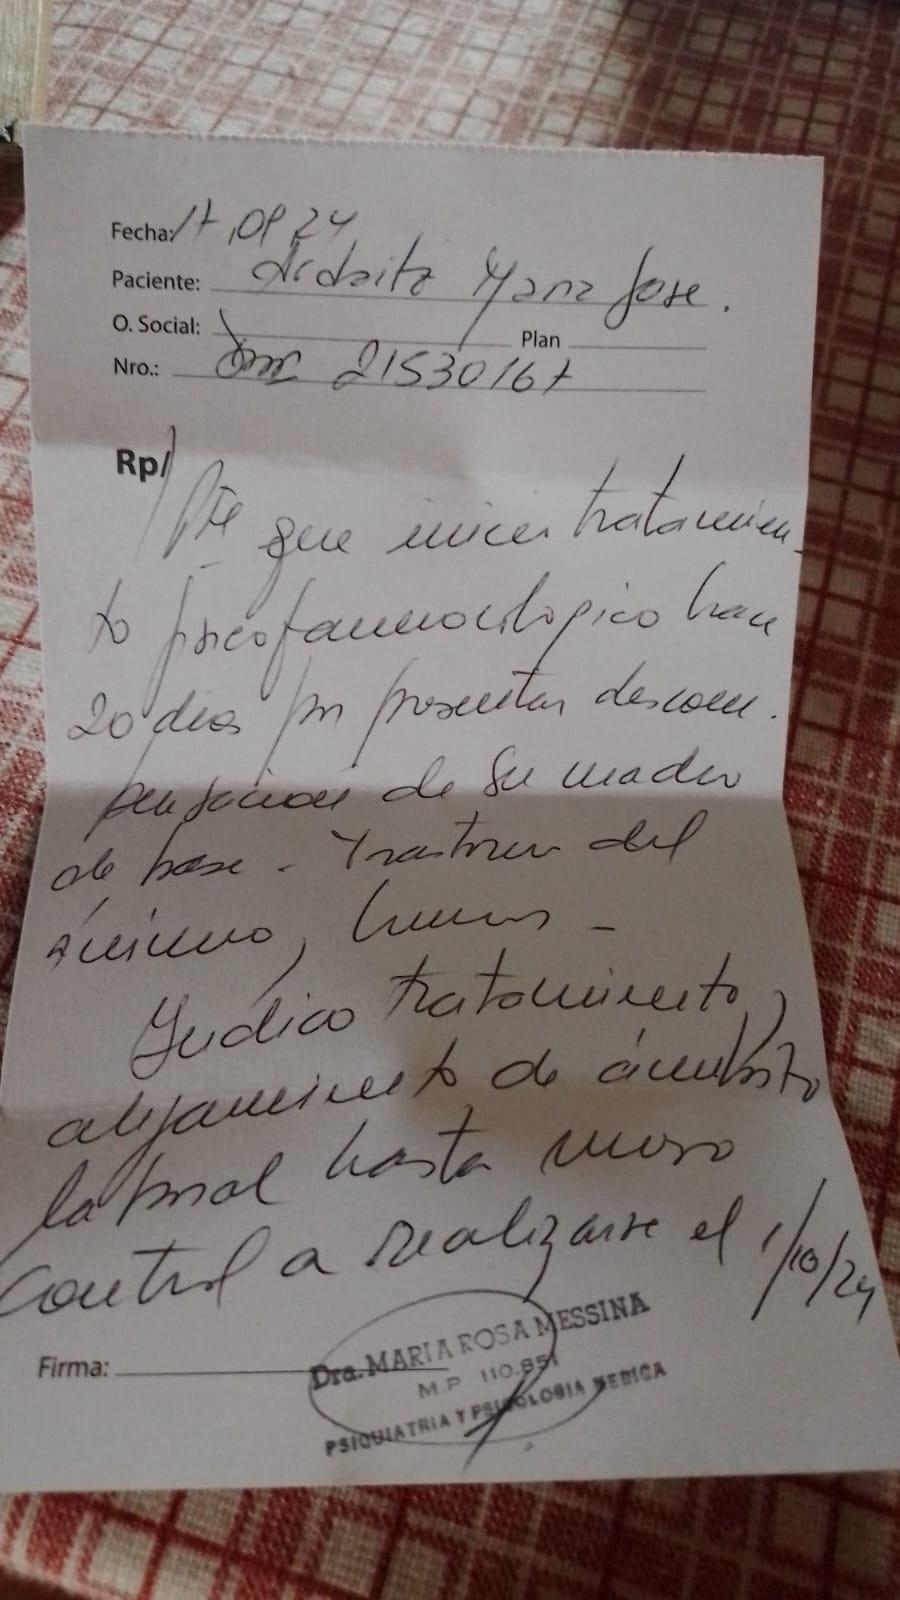 Fecha: 17.09.24
Paciente: Maria Jose.
O. Social: Plan
Nro.: DNI 21530167
Rp/
Pte que inicia tratamien-
to psicofarmacologico hace
20 dias por presentar descom-
pensacion de su cuadro
de base. Trastorno del
ánimo,
Indico tratamiento,
alejamiento de ámbito
laboral hasta nuevo
control a realizarse el 1/10/24
Firma:
Dra. MARIA ROSA MESSINA
M.P. 110.851
PSIQUIATRIA Y PSICOLOGIA MEDICA